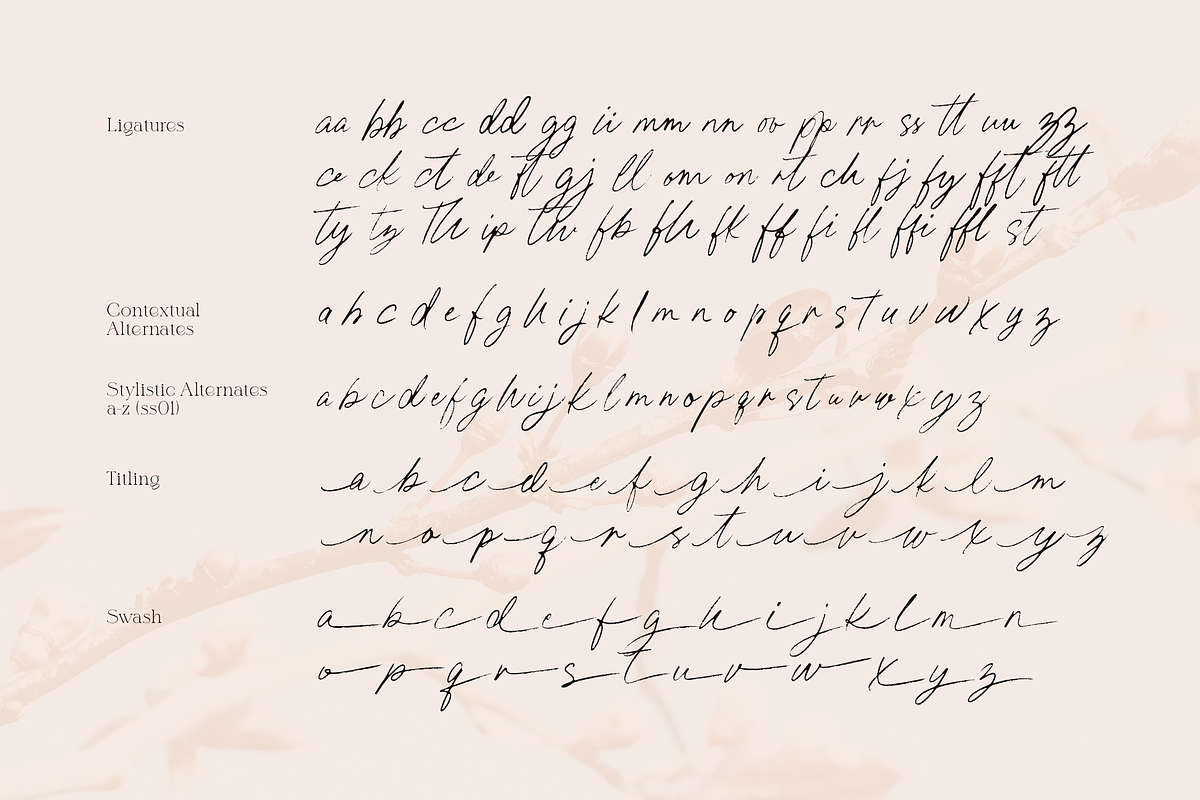 Ligatures
aa bb cc dd gg ii mm nn oo pp rr ss tt uu zz
ce ck ct de ft gj ll om on rt ch fj fy fft ftt
ty tz Th ip th fb fh fk ff fi fl ffi ffl st
Contextual
Alternates
a b c d e f g h i j k l m n o p q r s t u v w x y z
Stylistic Alternates
a-z (ss01)
a b c d e f g h i j k l m n o p q r s t u v w x y z
Titling
a b c d e f g h i j k l m
n o p q r s t u v w x y z
Swash
a b c d e f g h i j k l m n
o p q r s t u v w x y z